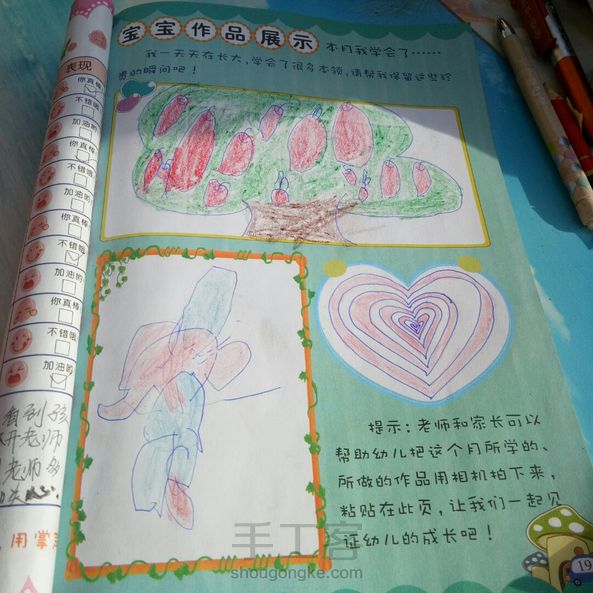 宝宝作品展示 本月我学会了……
我一天天在长大,学会了很多本领,请帮我保留这些珍
贵的瞬间吧!
表现
你真棒
不错哦
加油哟
你真棒
不错哦
加油哟
你真棒
不错哦
加油哟
你真棒
不错哦
加油哟
看到孩
开老师
老师多
用掌
提示:老师和家长可以
帮助幼儿把这个月所学的、
所做的作品用相机拍下来,
粘贴在此页,让我们一起见
证幼儿的成长吧!
19
手工客
shougongke.com